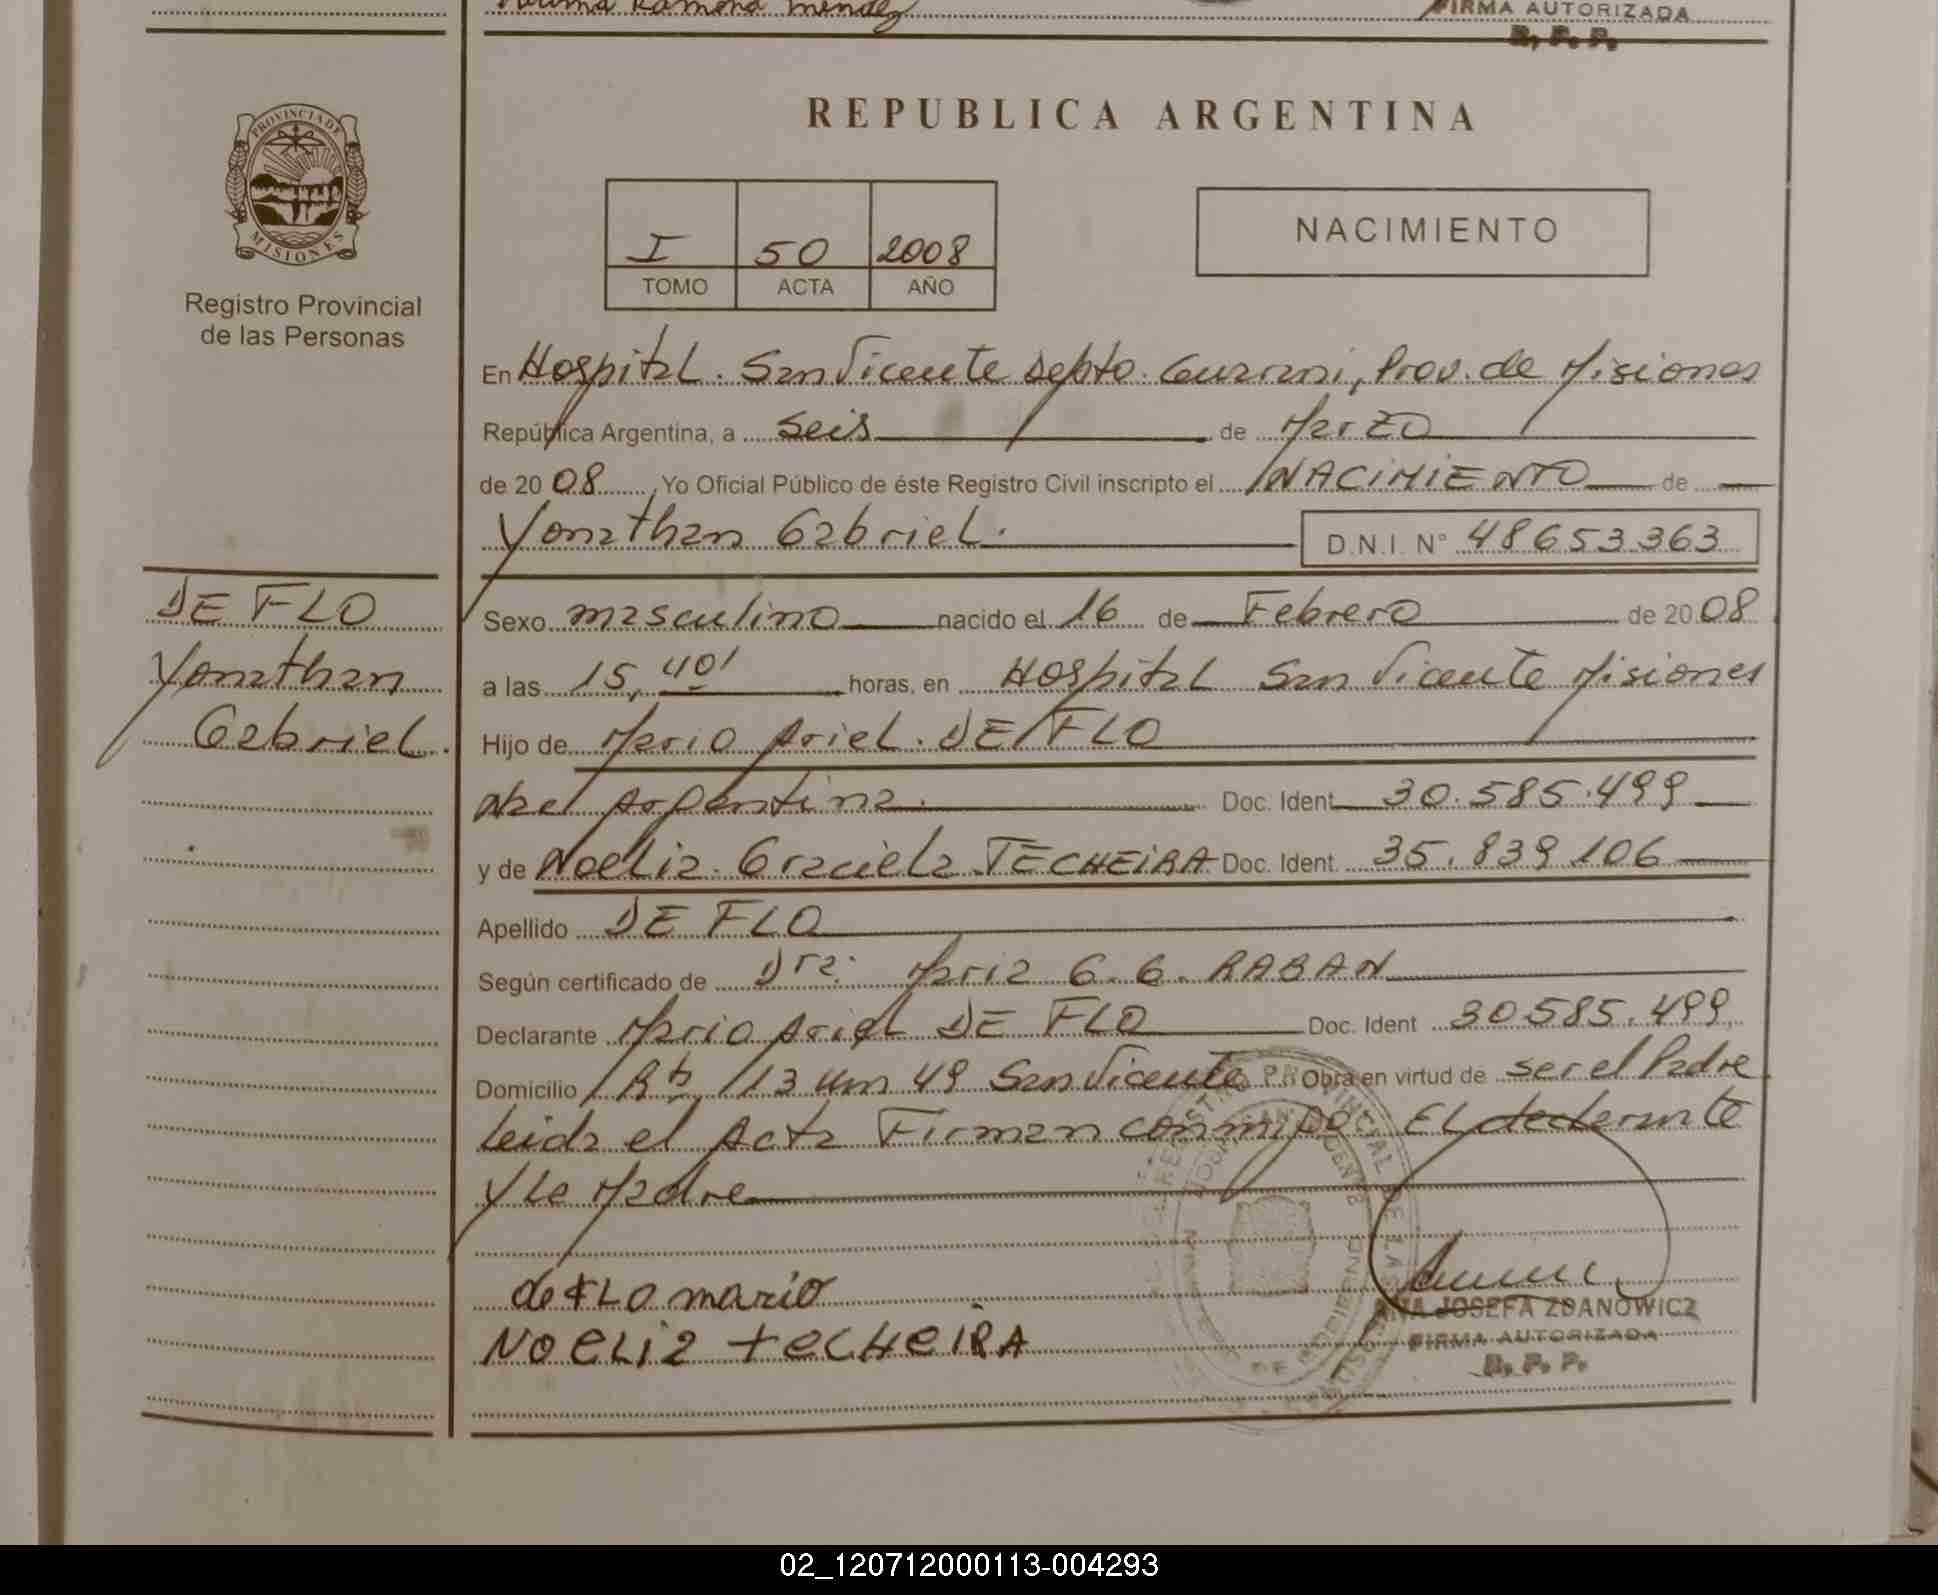 Ramona Mendez
FIRMA AUTORIZADA
R. P. P.
PROVINCIA DE
MISIONES
Registro Provincial
de las Personas
REPUBLICA ARGENTINA
I 50 2008
TOMO ACTA AÑO
NACIMIENTO
En Hospital. San Vicente depto. Guarani, Prov. de Misiones
República Argentina, a seis de Marzo
de 2008, Yo Oficial Público de éste Registro Civil inscripto el NACIMIENTO de
Yonathan Gabriel. D.N.I. N° 48653363
DE FLO
Yonathan
Gabriel.
Sexo masculino nacido el 16 de Febrero de 2008
a las 15,40' horas, en Hospital San Vicente Misiones
Hijo de Mario Ariel. DE FLO
Argentina. Doc. Ident. 30.585.499
y de Noelia. Graciela. TECHEIRA Doc. Ident. 35.839.106
Apellido DE FLO
Según certificado de Dra: Maria G. G. RABAN
Declarante Mario Ariel DE FLO Doc. Ident 30585.499
Domicilio 13 Km 49 San Vicente Obra en virtud de ser el Padre
Leida el Acta Firman conmigo. El declarante
y La Madre
de FLO mario
NOELIA TECHEIRA
ANA JOSEFA ZDANOWICZ
FIRMA AUTORIZADA
R. P. P.
02_120712000113-004293